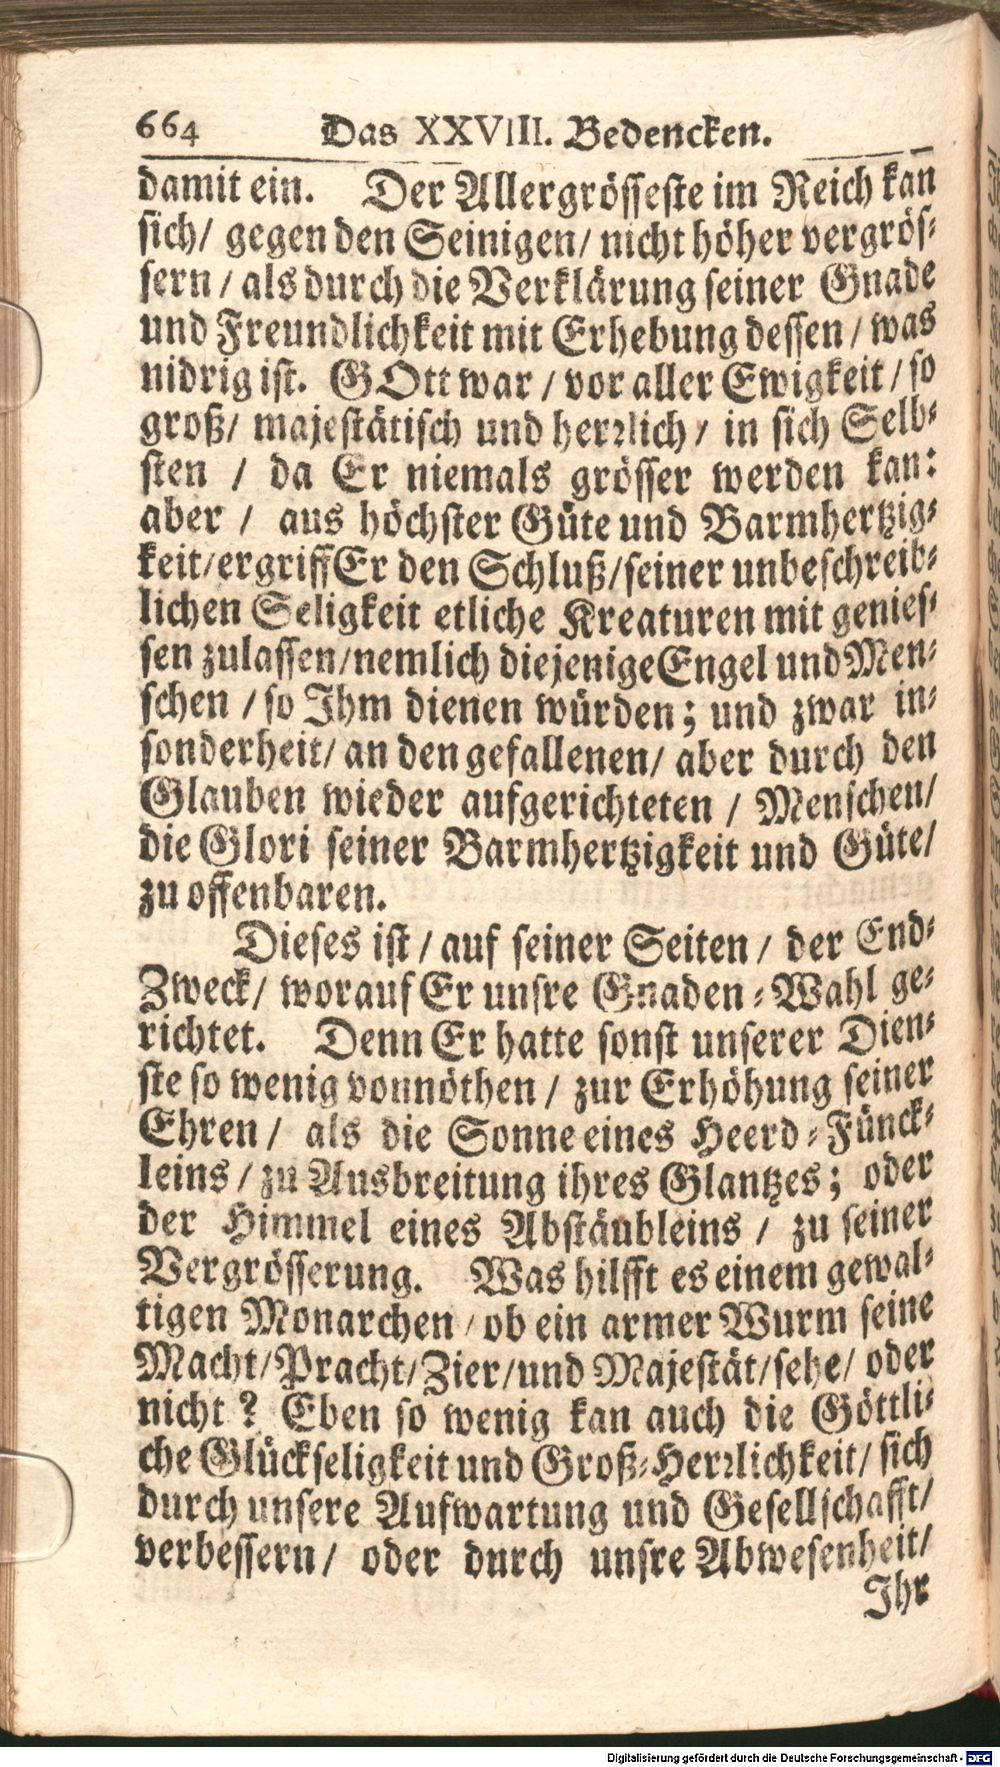 664 Das XXVIII. Bedencken.
damit ein. Der Allergrösseste im Reich kan
sich/ gegen den Seinigen/ nicht höher vergrös-
sern/ als durch die Verklärung seiner Gnade
und Freundlichkeit mit Erhebung dessen/ was
nidrig ist. GOtt war/ vor aller Ewigkeit/ so
groß/ majestätisch und herꝛlich/ in sich Selb-
sten/ da Er niemals grösser werden kan:
aber/ aus höchster Güte und Barmhertzig-
keit/ ergriff Er den Schluß/ seiner unbeschreib-
lichen Seligkeit etliche Kreaturen mit genies-
sen zulassen/ nemlich diejenige Engel und Men-
schen/ so Ihm dienen würden; und zwar in-
sonderheit/ an den gefallenen/ aber durch den
Glauben wieder aufgerichteten/ Menschen/
die Glori seiner Barmhertzigkeit und Güte/
zu offenbaren.
Dieses ist/ auf seiner Seiten/ der End-
Zweck/ worauf Er unsre Gnaden-Wahl ge-
richtet. Denn Er hatte sonst unserer Dien-
ste so wenig vonnöthen/ zur Erhöhung seiner
Ehren/ als die Sonne eines Heerd-Fünck-
leins/ zu Ausbreitung ihres Glantzes; oder
der Himmel eines Abstäubleins/ zu seiner
Vergrösserung. Was hilfft es einem gewal-
tigen Monarchen/ ob ein armer Wurm seine
Macht/ Pracht/ Zier/ und Majestät/ sehe/ oder
nicht? Eben so wenig kan auch die Göttli-
che Glückseligkeit und Groß-Herꝛlichkeit/ sich
durch unsere Aufwartung und Gesellschafft/
verbessern/ oder durch unsre Abwesenheit/
Ihr
Digitalisierung gefördert durch die Deutsche Forschungsgemeinschaft - DFG